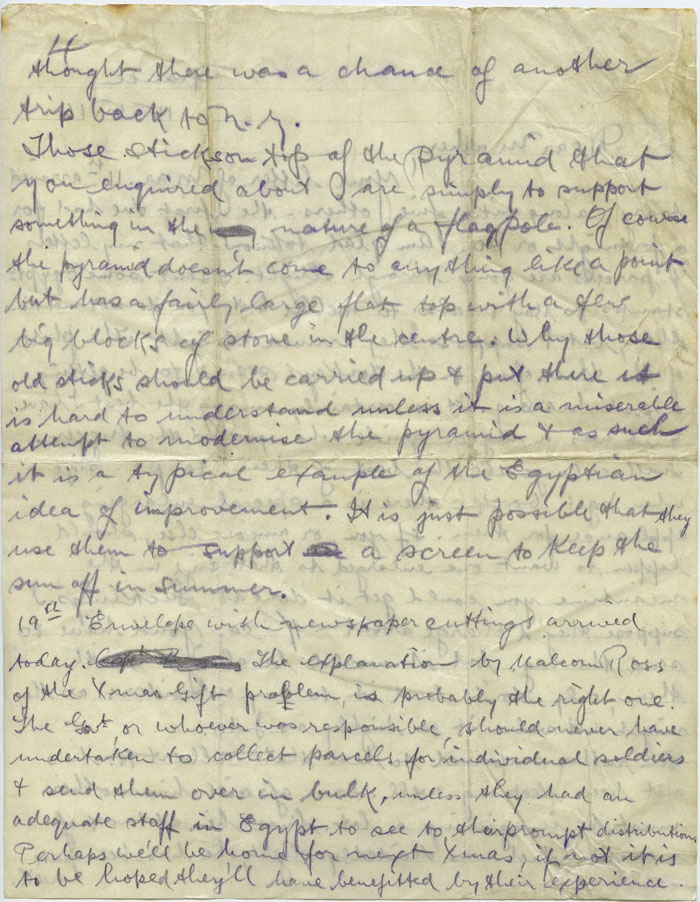 4
thought there was a chance of another
trip back to N.Z.
Those sticks on top of the Pyramid that
you enquired about are simply to support
something in the nature of a flagpole. Of course
the pyramid doesn't come to anything like a point
but has a fairly large flat top with a few
big blocks of stone in the centre. Why those
old sticks should be carried up & put there it
is hard to understand unless it is a miserable
attempt to modernise the pyramid & as such
it is a typical example of the Egyptian
idea of improvement. It is just possible that they
use them to support a screen to keep the
sun off in summer.
19st Envelope with newspaper cuttings arrived
today. The explanation by Malcom Ross
of the Xmas Gift problem is probably the right one.
The Govt, or whoever was responsible, should never have
undertaken to collect parcels for individual soldiers
& send them over in bulk, unless they had an
adequate staff in Egypt to see to their prompt distribution.
Perhaps we'll be home for next Xmas, if not it is
to be hoped they'll have benefitted by their experience.